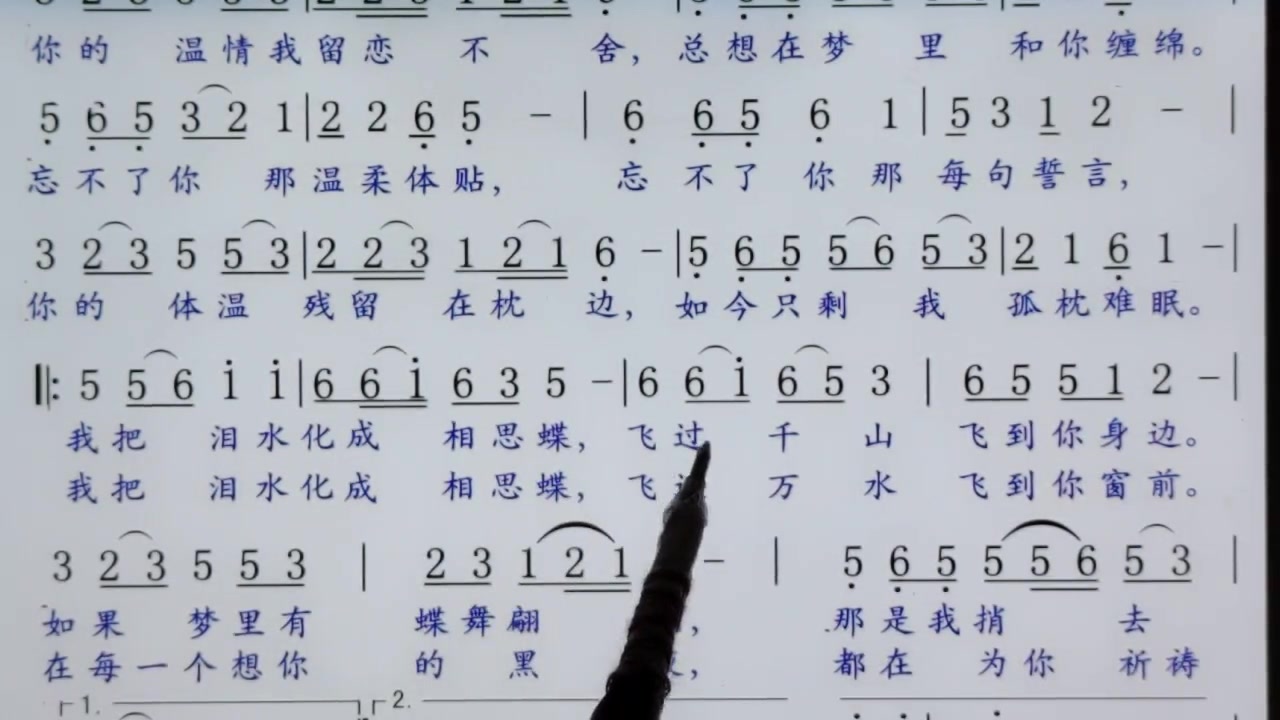 你的 温情我留恋 不 舍，总想在梦 里 和你缠绵。
5 6 5 3 2 1 | 2 2 6 5 － | 6 6 5 6 1 | 5 3 1 2 － |
忘不了你 那温柔体贴， 忘 不了 你 那 每句誓言，
3 2 3 5 5 3 | 2 2 3 1 2 1 6 － | 5 6 5 5 6 5 3 | 2 1 6 1 － |
你的 体温 残留 在枕 边，如今只剩 我 孤枕难眠。
‖: 5 5 6 i i | 6 6 i 6 3 5 － | 6 6 i 6 5 3 | 6 5 5 1 2 － |
我把 泪水化成 相思蝶，飞过 千 山 飞到你身边。
我把 泪水化成 相思蝶，飞 万 水 飞到你窗前。
3 2 3 5 5 3 | 2 3 1 2 1 － | 5 6 5 5 5 6 5 3 |
如果 梦里有 蝶舞翩 ，那是我捎 去
在每一个想你 的 黑 ，都在 为你 祈祷
1. 2.